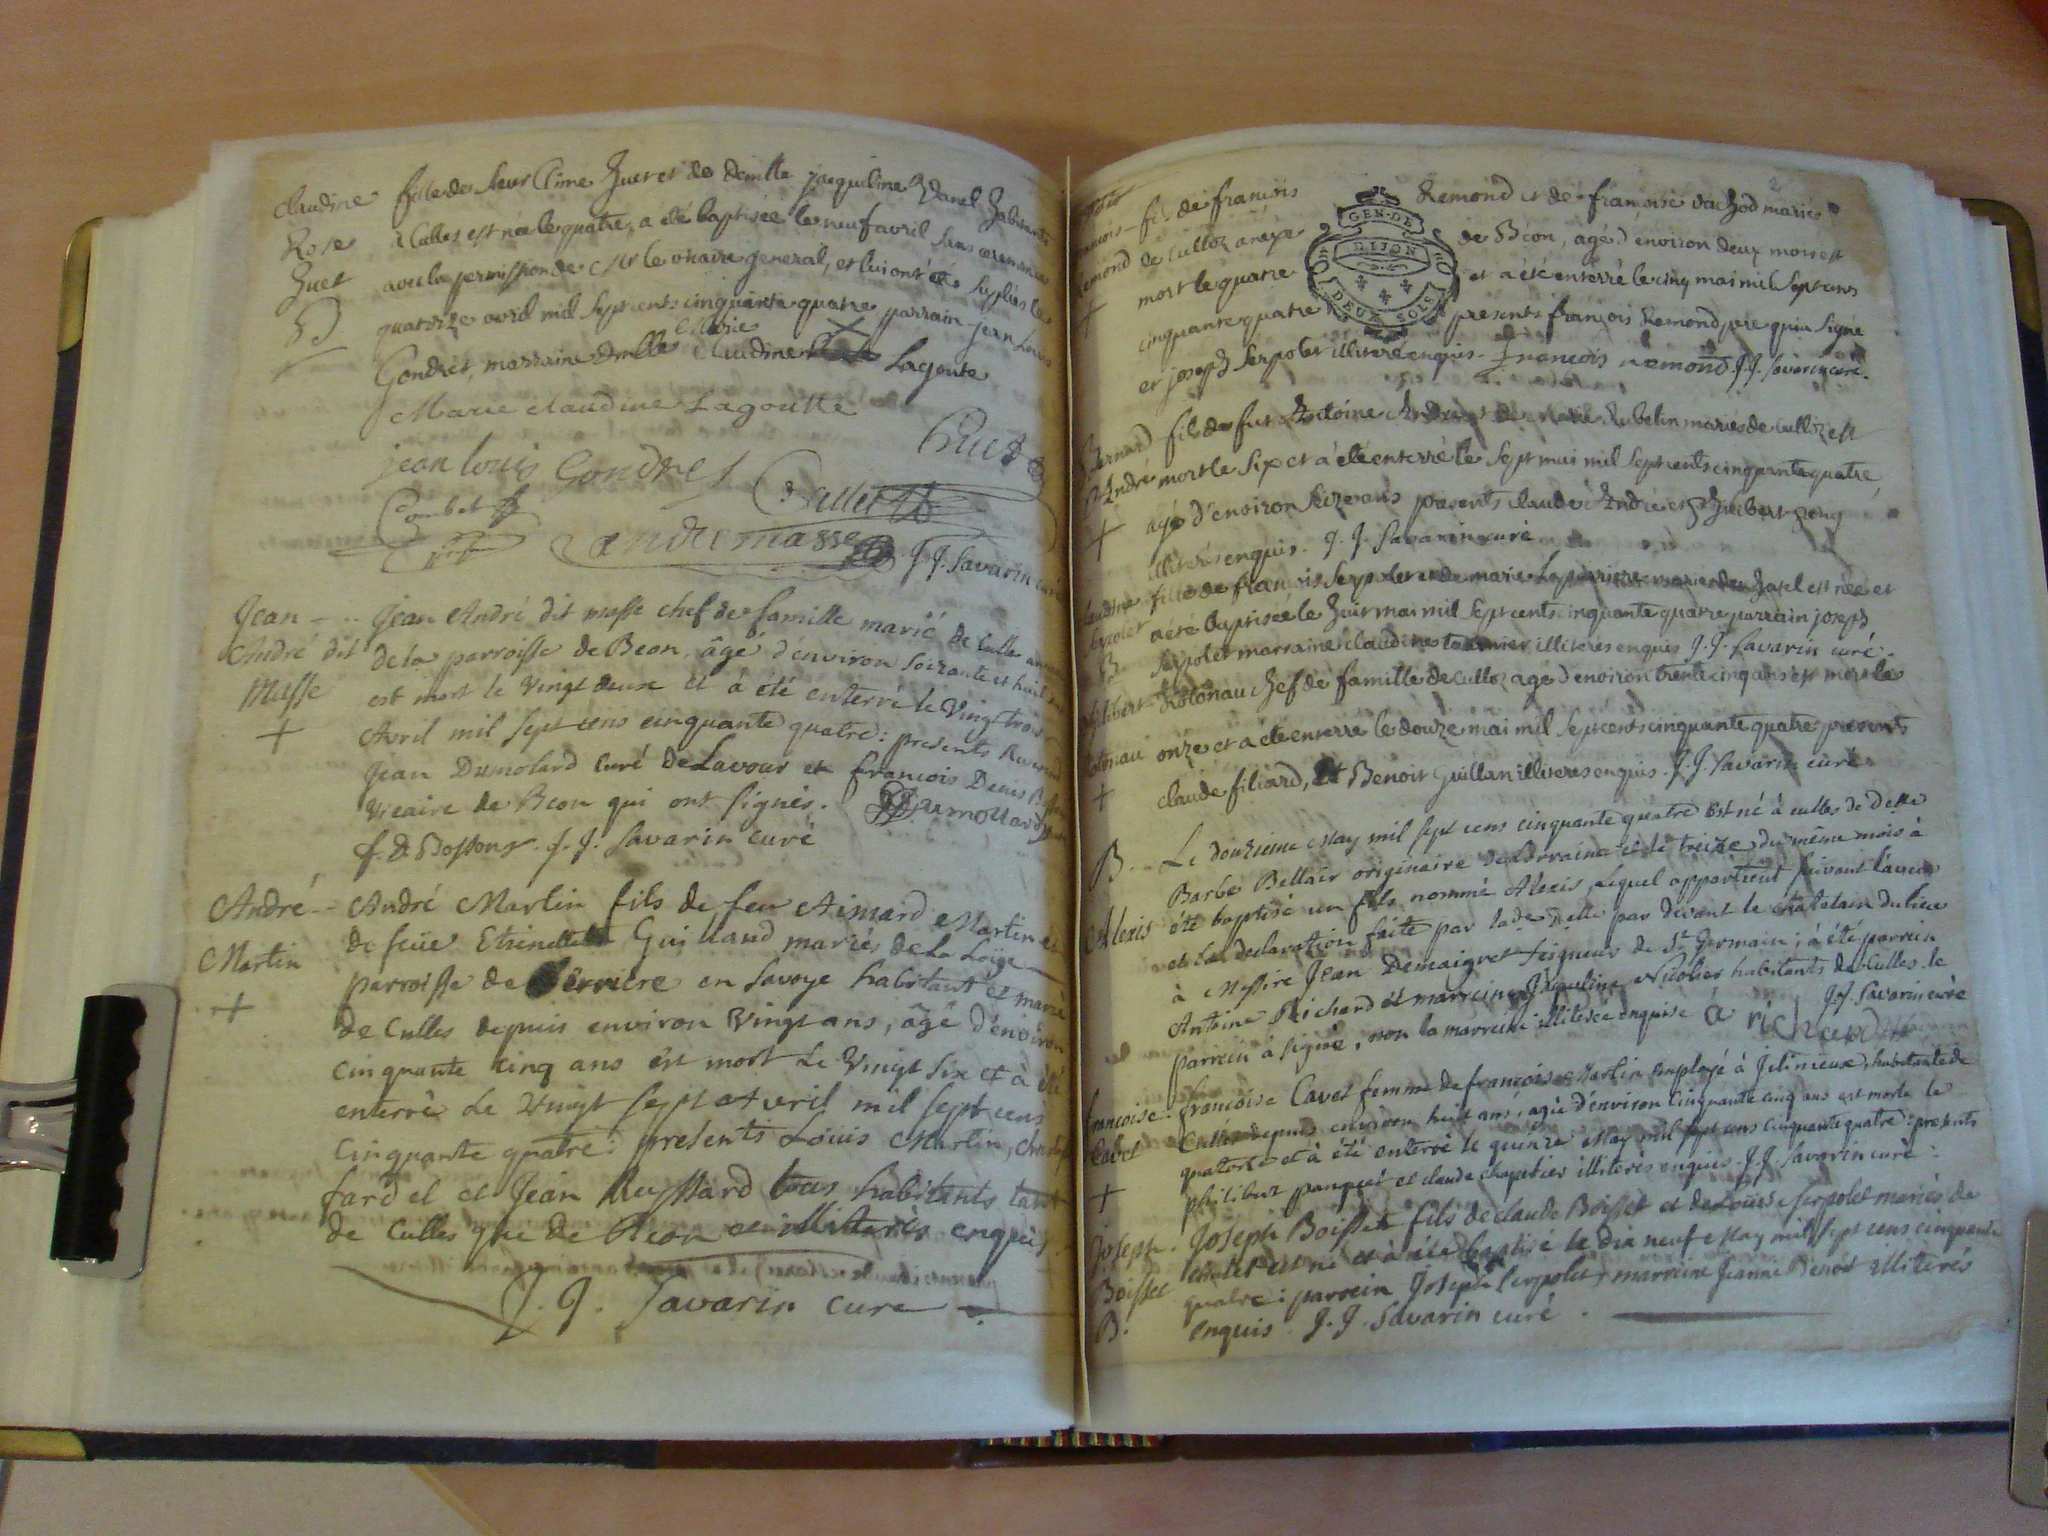 Claudine fille de Sieur Clime huet et de demlle jaqueline
Rose à Culles est née le quatre, a été baptisée le neuf avril sans ceremonie
huet avec la permission de Mr le vicaire general, et lui ont été suplées le
B quatorze avril mil sept cents cinquante quatre parrain jean Louis
Gondret, marraine demlle Marie Claudine Lagoute
Marie claudine Lagoutte
huet
jean louis Gondret
Combet
andre masse J.J. Savarin curé
Jean - - Jean André dit masse chef de famille marié de Culles
André dit de la parroisse de Beon, âgé d'environ soixante et huit
Masse est mort le vingt deux et à été enterré le vingt trois
+ Avril mil sept cens cinquante quatre : presents
Jean Dumolard curé de Lavour et francois Denis
vicaire de Beon qui ont signés. Dumollard
f. D. Bossons. J. J. Savarin curé
André - - André Martin fils de feu Aimard Martin et
Martin de feüe Guillaud mariés de La
+ parroisse de en Savoye habitant et marié
de Culles depuis environ vingt ans, âgé d'environ
cinquante cinq ans est mort le vingt six et à été
enterré le vingt sept avril mil sept cens
cinquante quatre : presents Louis Martin,
fardel et Jean tous habitants tant
de Culles que de Beon illiterés enquis
J. J. Savarin curé
GEN. DE
DIJON
DEUX SOLS
fils de francois Remond et de francoise vachod mariés
Remond de Culloz anexe de Béon, agé d'environ deux mois est
+ mort le quatre et a été enterré le cinq mai mil sept cens
cinquante quatre presents francois Remond pere qui a signé
et joseph Serpolet illiteré enquis. francois remond J.J. Savarin curé.
Bernard fils de feu Antoine André et de marie mariés de culloz est
André mort le six et a été enterré le sept mai mil sept cents cinquante quatre
+ agé d'environ seize ans presents claude André et
illiterés enquis. J. J. Savarin curé
Claudine fille de francois Serpolet et de marie Laperriere mariés de est née et
Serpolet a été baptisée le huit mai mil sept cents cinquante quatre parrain joseph
B Serpolet marraine claudine illiterés enquis J. J. Savarin curé.
philibert chef de famille de culloz agé d'environ trente cinq ans est mort le
onze et a été enterré le douze mai mil sept cents cinquante quatre presents
+ claude filiard, et Benoit Guillan illiterés enquis. J. J. Savarin curé
B - - Le douzieme May mil sept cens cinquante quatre est né à culles de Delle
Barbe Bellair originaire de Lorraine et le treize du même mois à
Alexis été baptisé un fils nommé Alexis, lequel appartient suivant l'aveu
et la declaration faite par la de Delle par devant le chatelain du lieu
à Messire Jean Demaigret seigneur de St Germain ; à été parrein
Antoine Richard et marreine Jaqueline Nicolier habitants de Culles. le
parrein à signé, non la marreine illiterée enquise J.J. Savarin curé
a richard
francoise - francoise Cavet femme de francois Martin employé à habitante de
Cavet Culles depuis environ huit ans, agée d'environ cinquante cinq ans est morte le
+ quatorze et à été enterré le quinze May mil sept cens cinquante quatre : presents
philibert panquet et claude chapelier illiterés enquis. J. J. Savarin curé.
Joseph - Joseph Boisset fils de claude Boisset et de Serpolet mariés de
Boisset est né et à été baptisé le dix neuf May mil sept cens cinquante
B. quatre : parrein Joseph Serpolet, marreine Jeanne Benoit illiterés
enquis. J. J. Savarin curé.